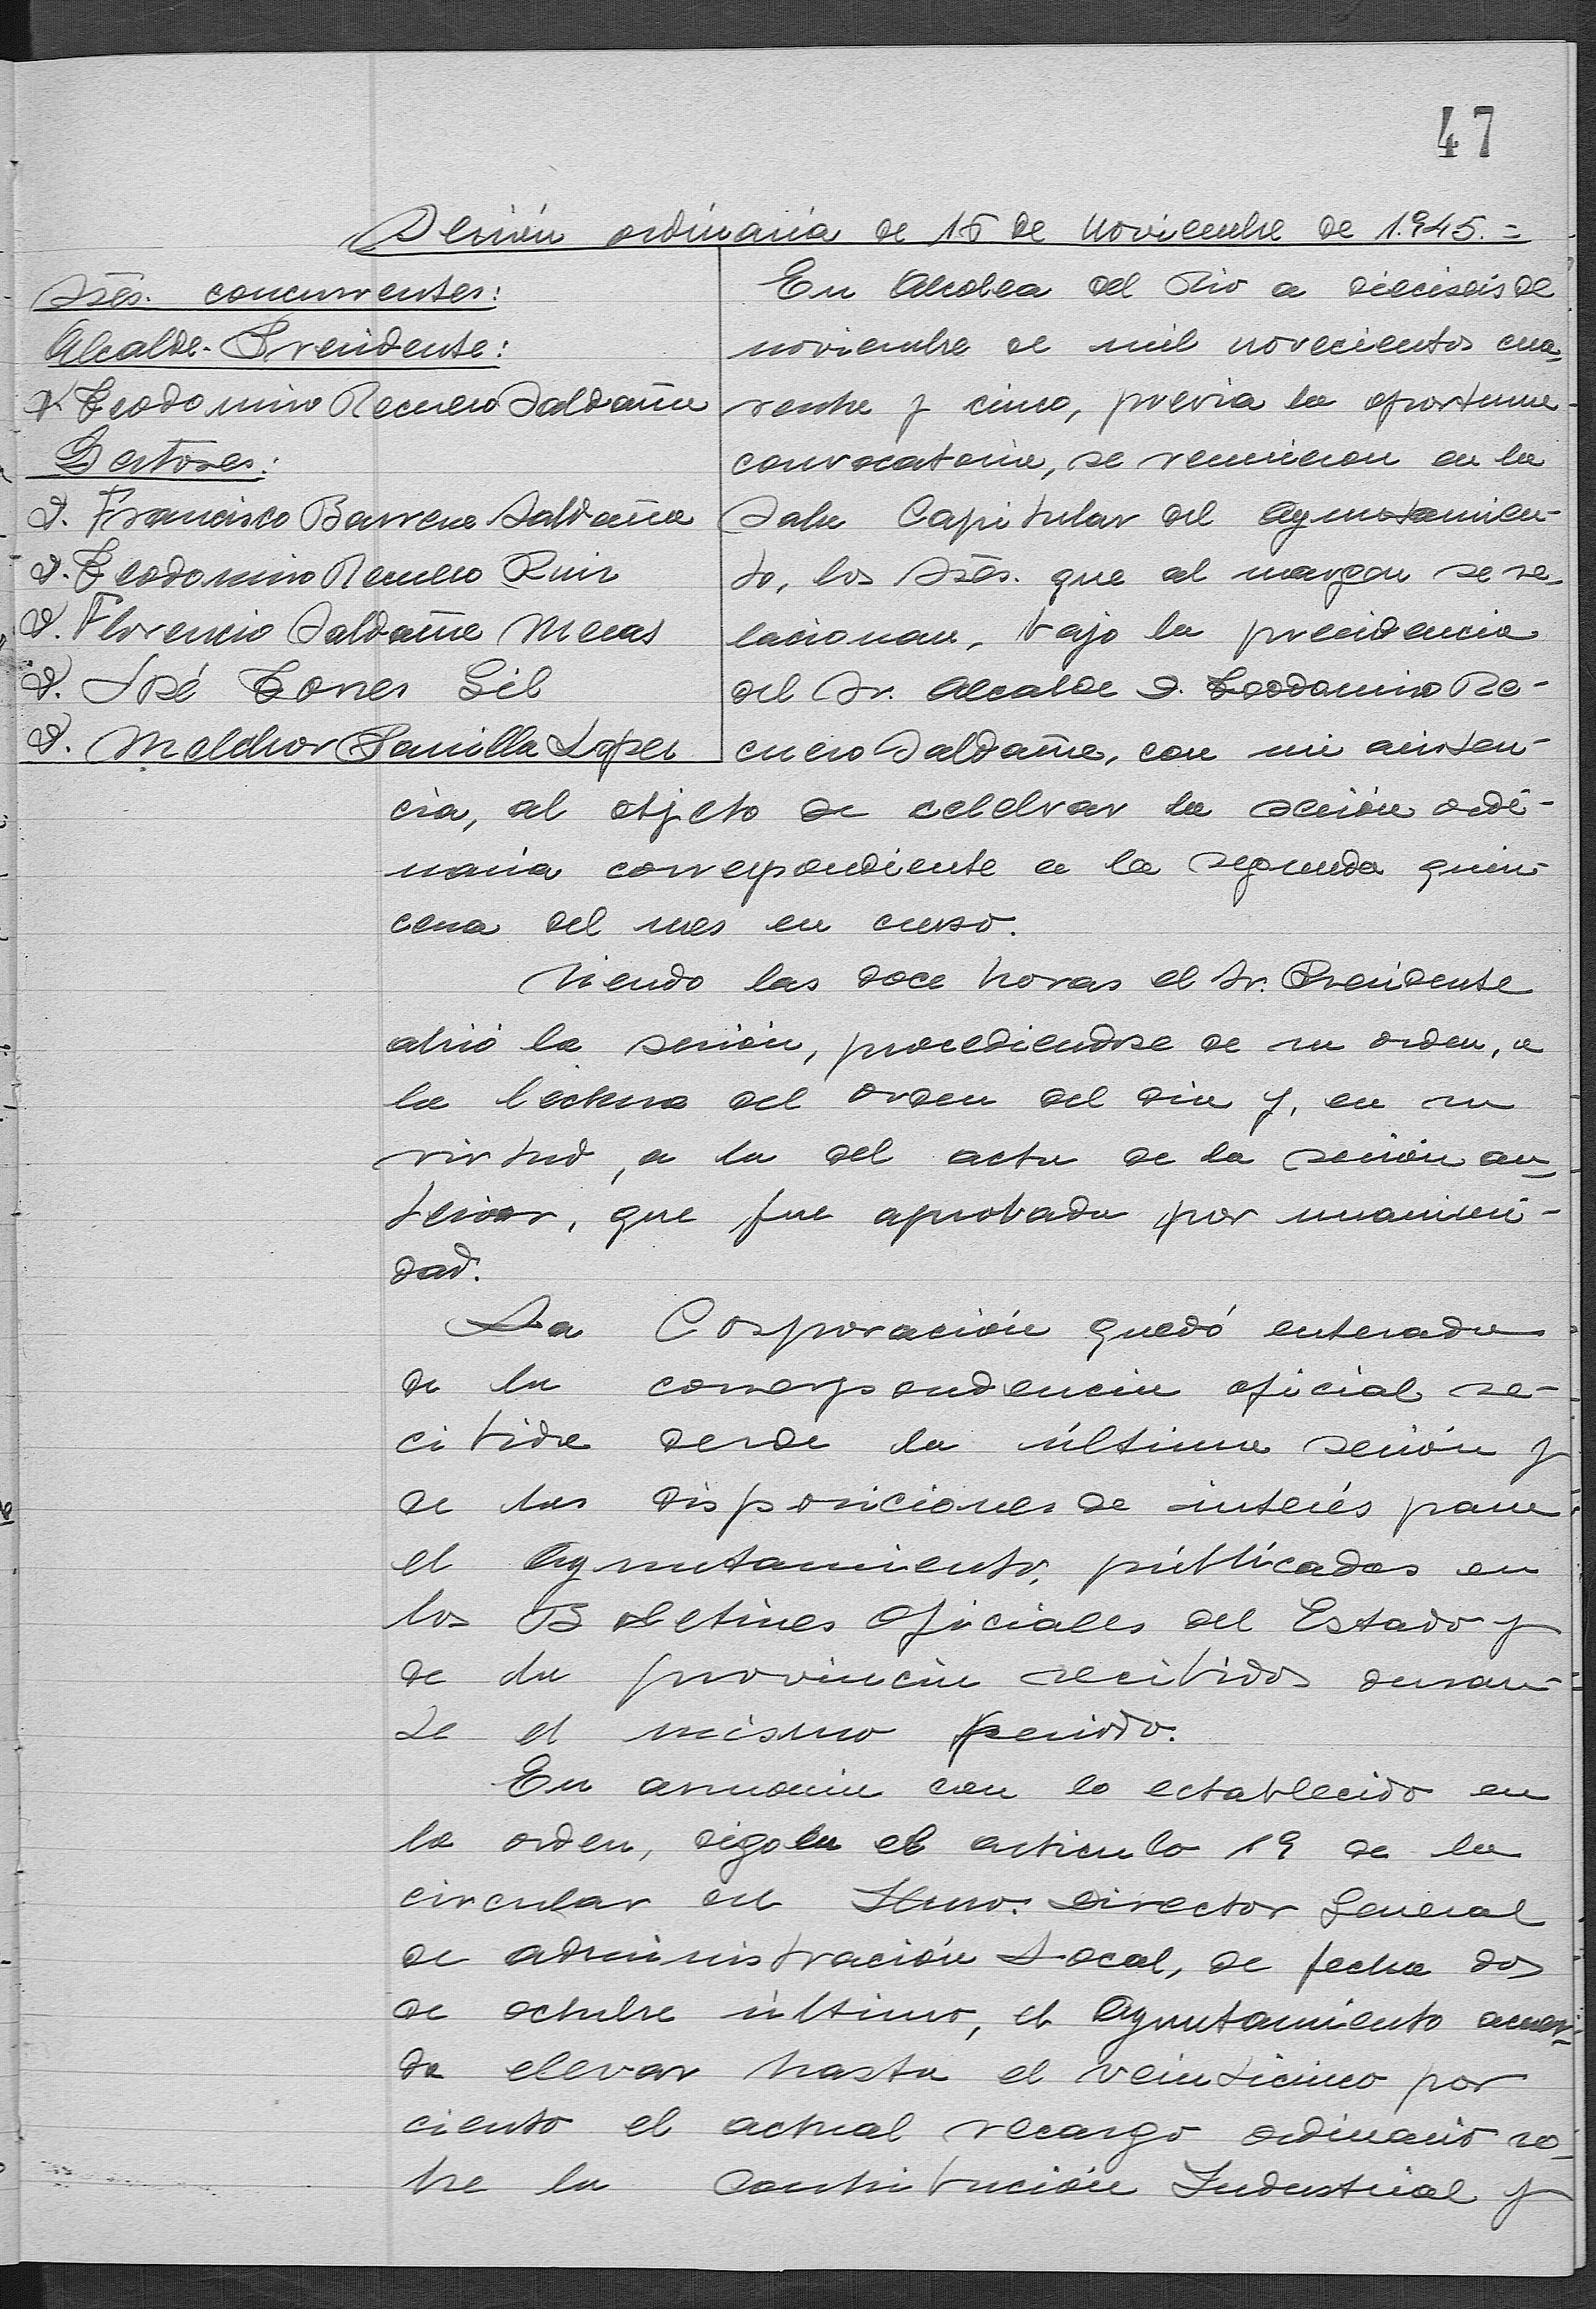 47
Sesión ordinaria de 16 de noviembre de 1.945.=
Srẽs. concurrentes:
Alcalde-Presidente:
D. Teodomiro Recuero Saldaña
Gestores:
D. Francisco Barrera Saldaña
D. Teodomiro Recuero Ruiz
D. Florencio Saldaña Meras
D. José Torres Gil
D. Melchor Lopez
En Alcolea del Rio a dieciseis de
noviembre de mil novecientos cua-
renta y cinco, previa la oportuna
convocatoria, se reunieron en la
Sala Capitular del Ayuntamien-
to, los Srẽs. que al margen se re-
lacionan, bajo la presidencia
del Sr. Alcalde D. Teodomiro Re-
cuero Saldaña, con mi asisten-
cia, al objeto de celebrar la sesión ordi-
naria correspondiente a la segunda quin-
cena del mes en curso.
Siendo las doce horas el Sr. Presidente
abrió la sesión, procediendose de su orden, a
la lectura del orden del dia y, en su
virtud, a la del acta de la sesión an-
terior, que fue aprobada por unanimi-
dad.
La Corporación quedó enterada
de la correspondencia oficial re-
cibida desde la última sesión y
de las disposiciones de interés para
el Ayuntamiento, públicadas en
los Boletines Oficiales del Estado y
de la provincia recibidos duran-
te el mismo periodo.
En armonia con lo establecido en
la orden, digo en el articulo 19 de la
circular del Iltmo. Director General
de Administración Local, de fecha dos
de octubre último, el Ayuntamiento acuer-
da elevar hasta el veinticinco por
ciento el actual recargo ordinario so-
bre la Contribución Industrial y